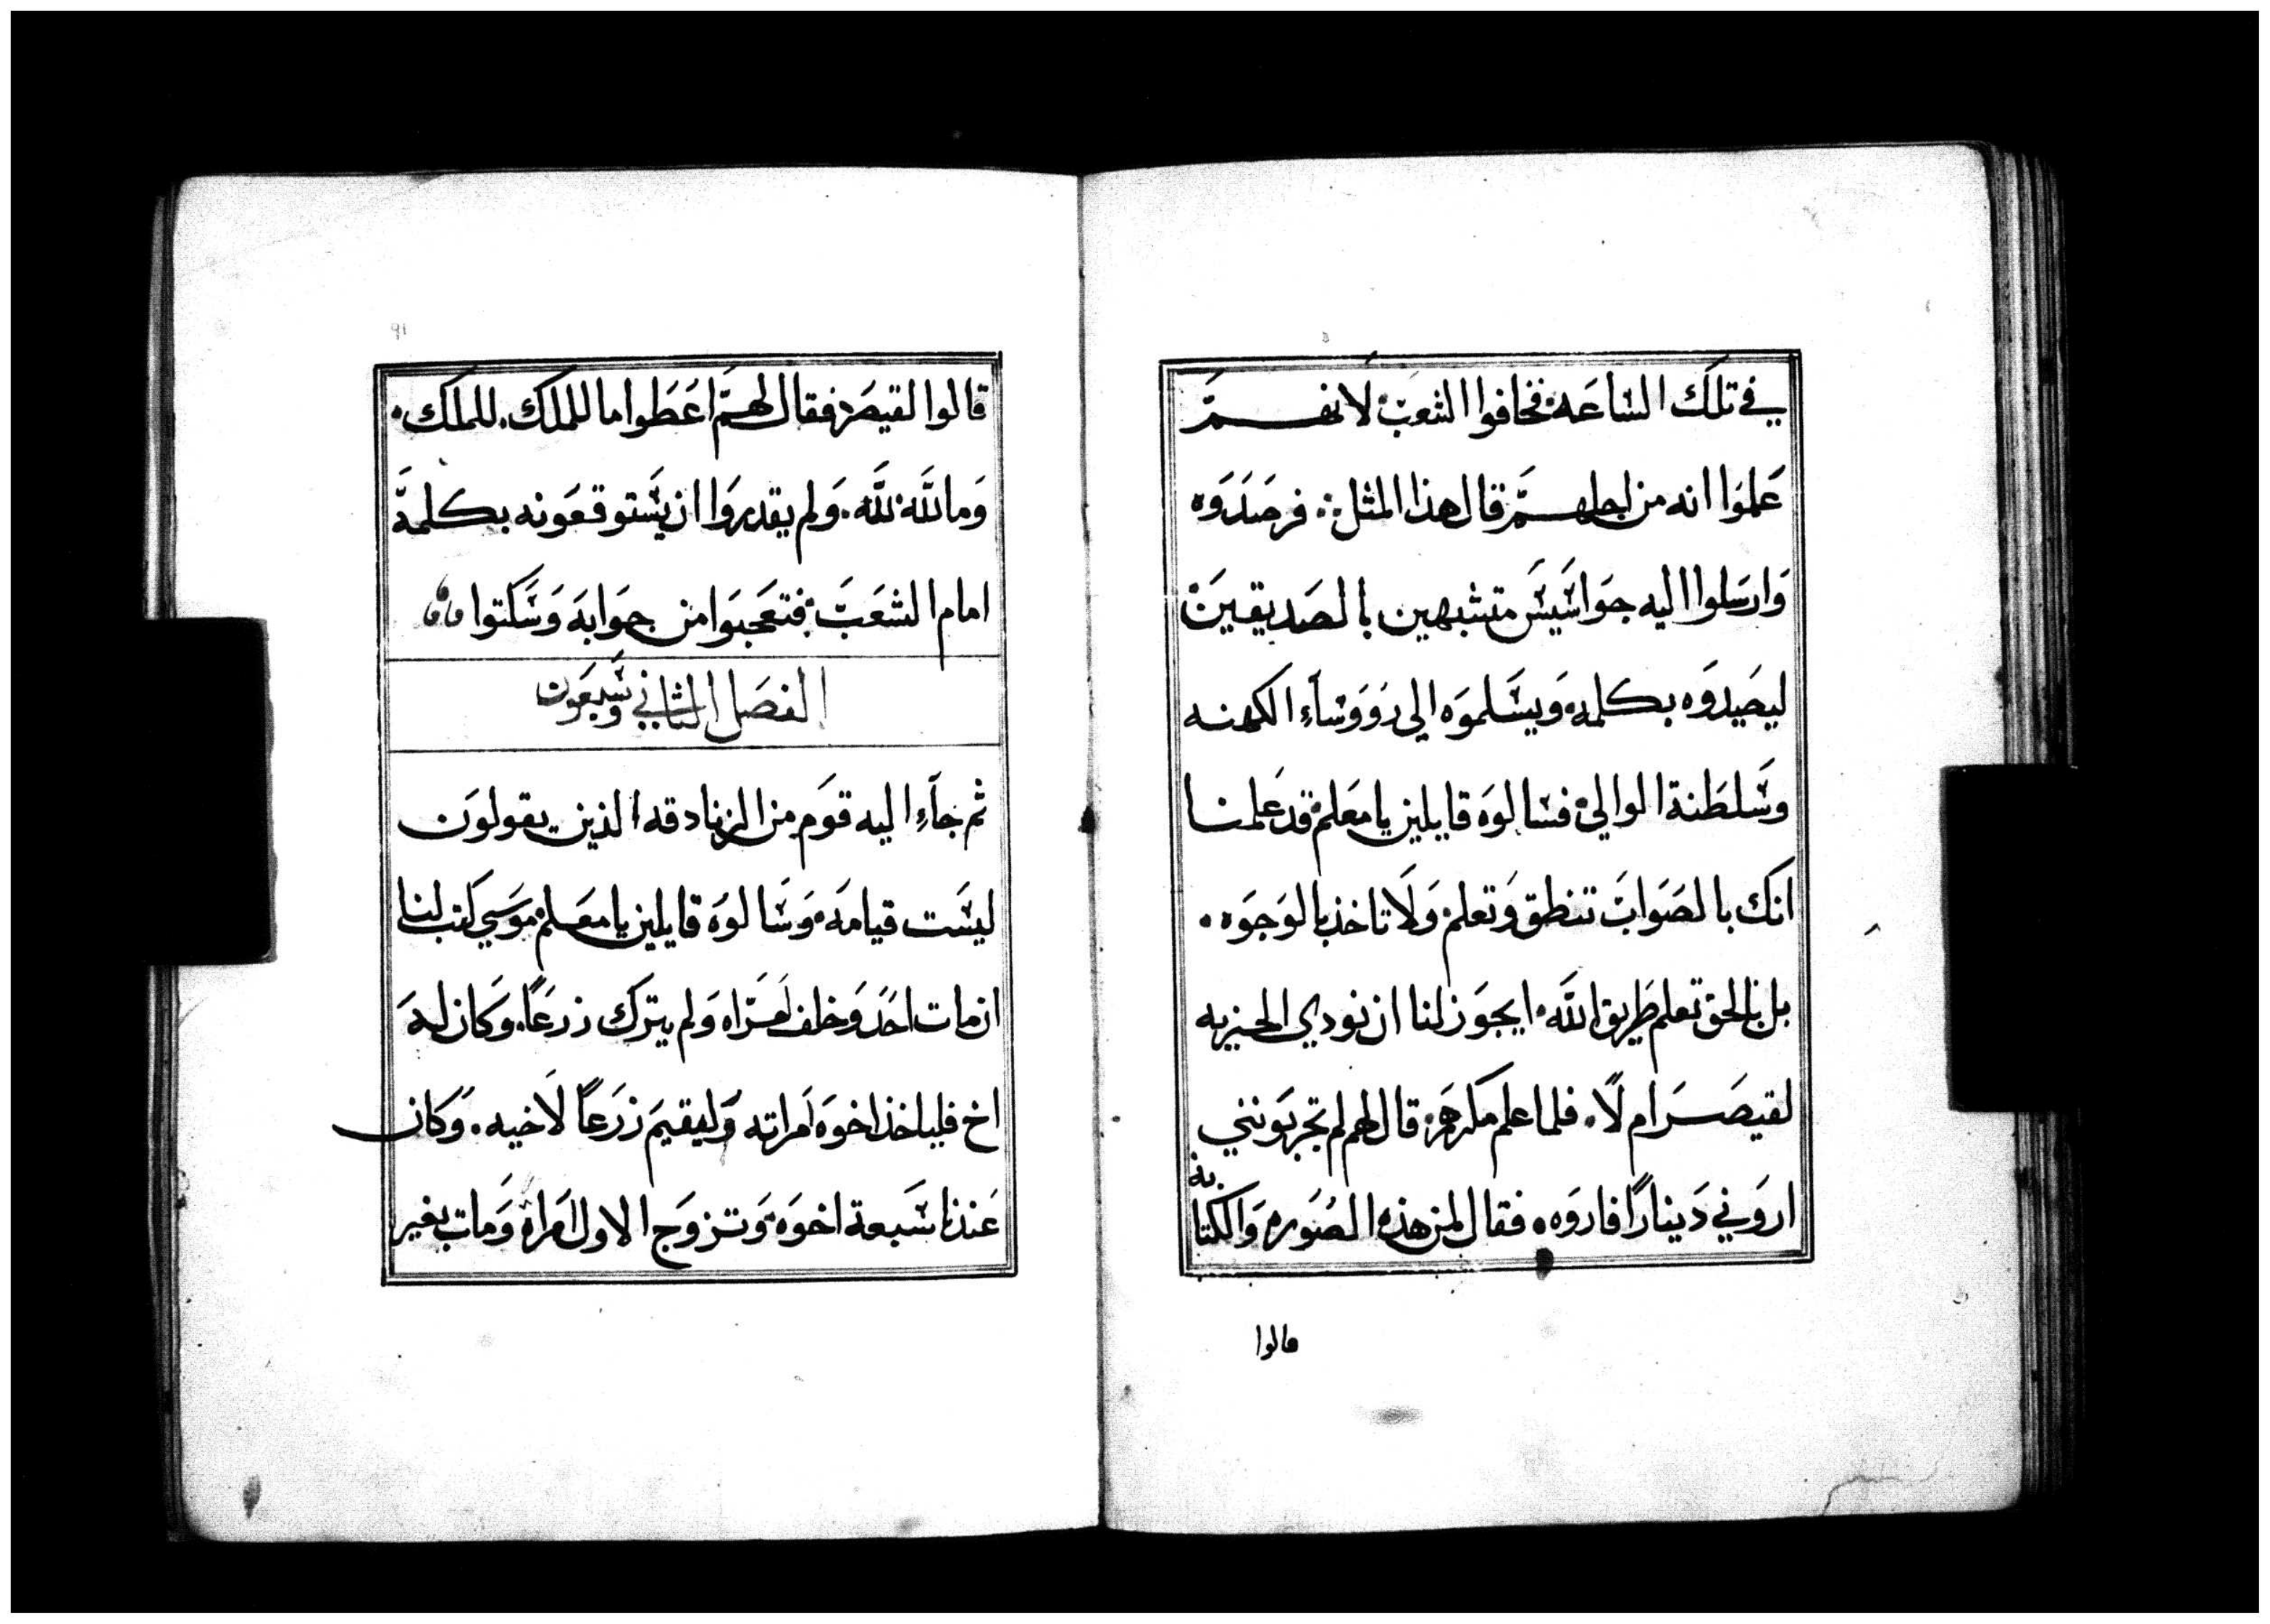 في تلك الساعة فخافوا الشعب لانهم
علموا انه من اجلهم قال هذا المثل فرصدوه
وارسلوا اليه جواسيس متشبهين بالصديقين
ليصيدوه بكلمه ويسلموه الى رووساء الكهنه
وسلطنة الوالي فسالوه قايلين يا معلم قد علمنا
انك بالصواب تنطق وتعلم ولا تاخذ بالوجوه
بل بالحق تعلم طريق الله ايجوز لنا ان نودي الجزيه
لقيصر ام لا فلما علم مكرهم قال لهم لم تجربونني
اروني دينارا فاروه فقال لمن هذه الصوره والكتابه
قالوا
٩١
قالوا لقيصر فقال لهم اعطوا ما للملك للملك
وما لله لله ولم يقدروا ان يستوقعونه بكلمة
امام الشعب فتعجبوا من جوابه وسكتوا
الفصل الثاني وسبعون
ثم جاء اليه قوم من الزنادقه الذين يقولون
ليست قيامه وسالوه قايلين يا معلم موسي كتب لنا
ان مات احد وخلف امراه ولم يترك زرعا وكان له
اخ فليا خذ اخوه امراته وليقيم زرعا لاخيه وكان
عندنا سبعة اخوه وتزوج الاول امراه ومات بغير